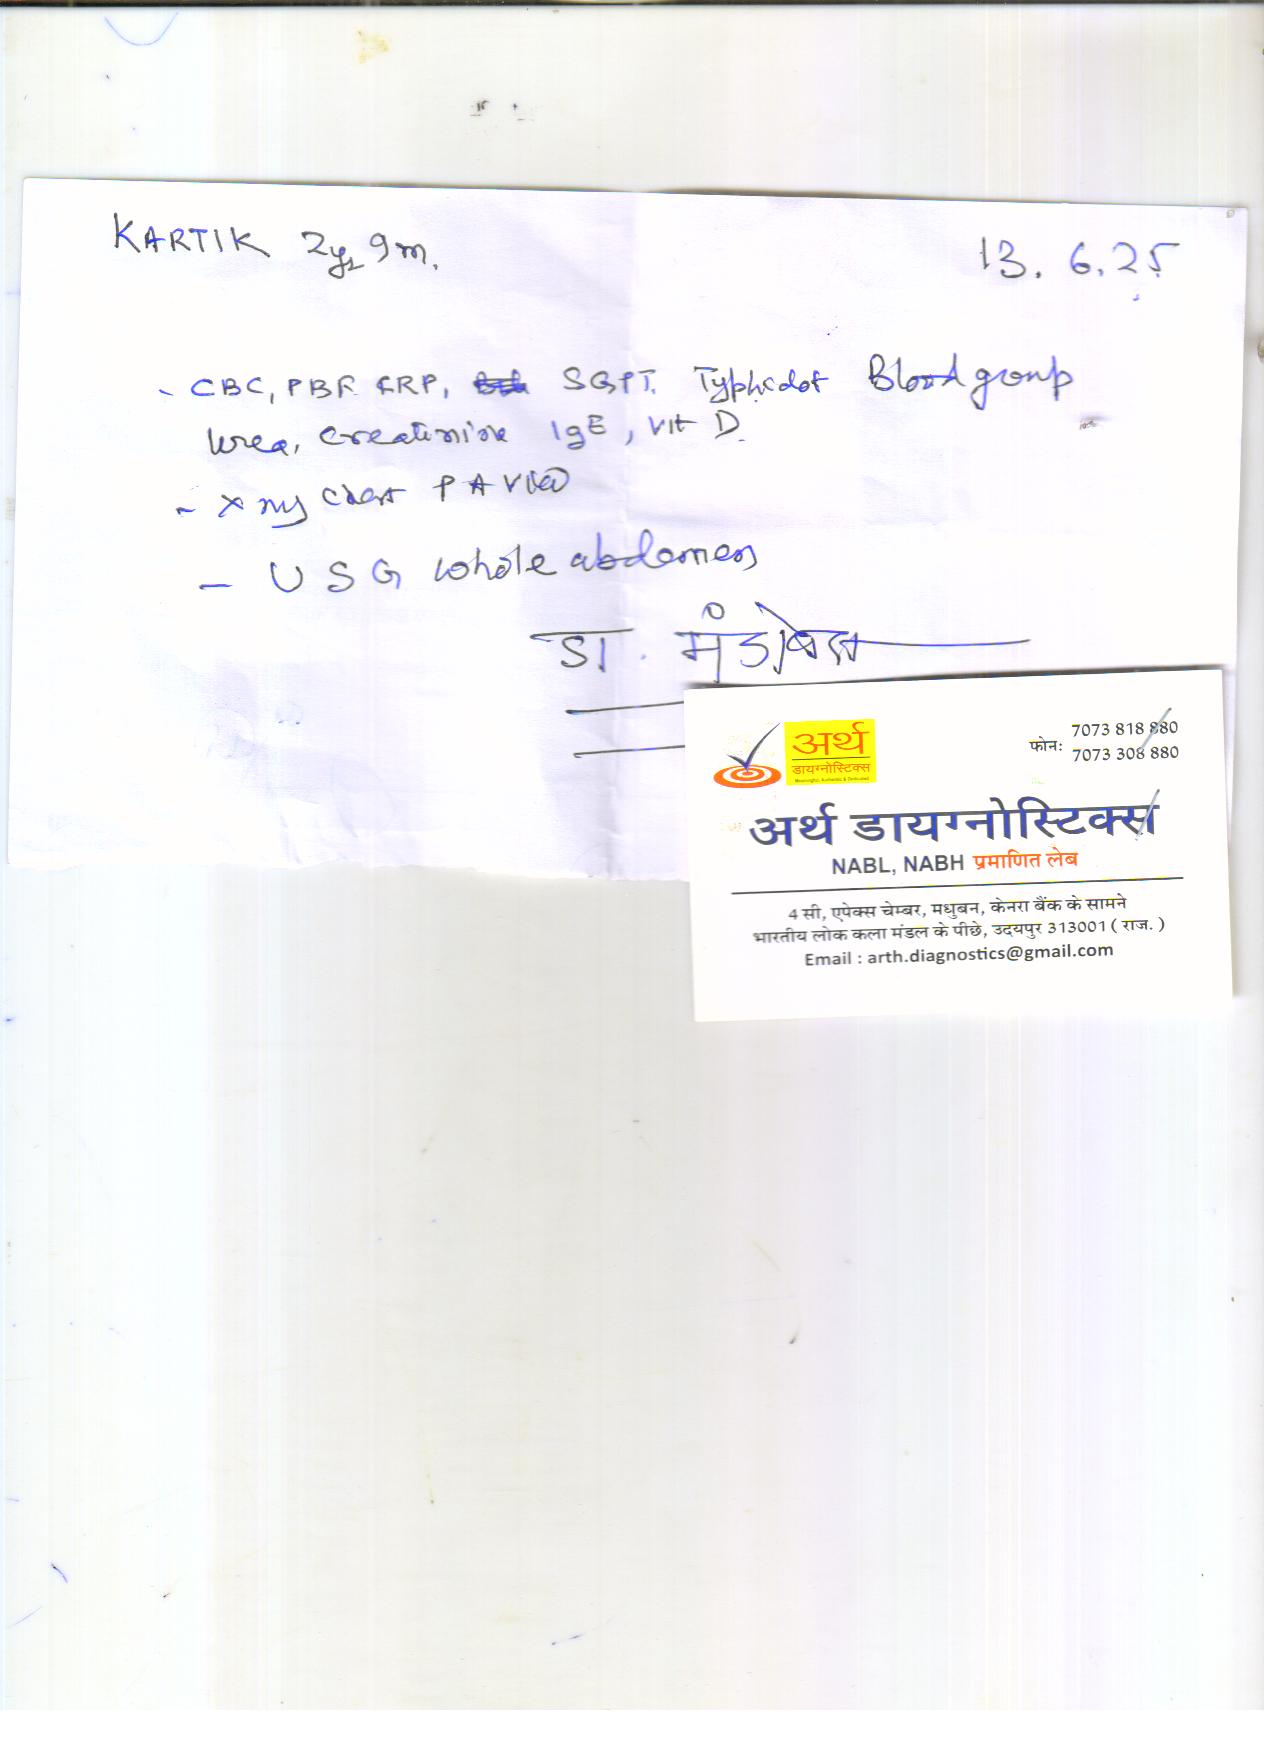 KARTIK 2yr 9m.
13.6.25
- CBC, PBF CRP, SGPT. Typhidot Blood group
Urea, Creatinine IgE, Vit D
- X ray Chest PA View
- USG whole abdomen
डा.
अर्थ
डायग्नोस्टिक्स
Meaningful, Authentic & Dedicated
फोन: 7073 818 880
7073 308 880
अर्थ डायग्नोस्टिक्स
NABL, NABH प्रमाणित लेब
4 सी, एपेक्स चेम्बर, मधुबन, केनरा बैंक के सामने
भारतीय लोक कला मंडल के पीछे, उदयपुर 313001 ( राज. )
Email : arth.diagnostics@gmail.com